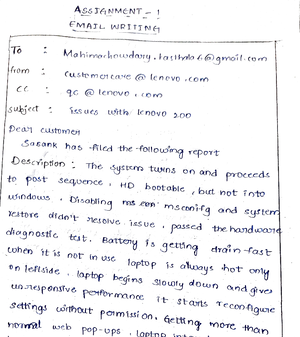 ASSIGNMENT - 1
EMAIL WRITING
To :
from : customercare @ lenovo .com
CC : qc @ lenovo . com
subject : issues with lenovo 200
Dear customer
Sasank has filed the following report
Description : The system turns on and proceeds
to post sequence , HD bootable , but not into
windows . Disabling msconfig and system
restore didn't resolve issue . passed the hardware
diagnostic test. Battery is getting drain-fast
when it is not in use laptop is always hot only
on leftside . laptop begins slowly down and gives
unresponsive performance it starts reconfigure
settings without permission. Getting more than
normal web pop-ups . laptop